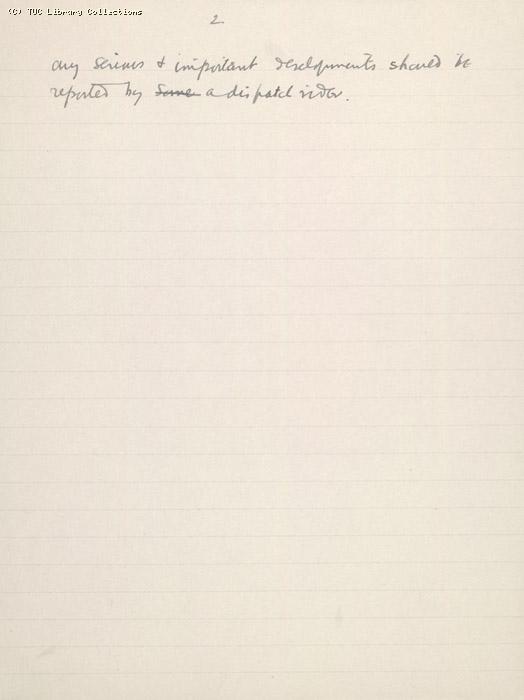 (C) TUC Library Collections
2
any serious & important developments should be
reported by Some a dispatch rider.